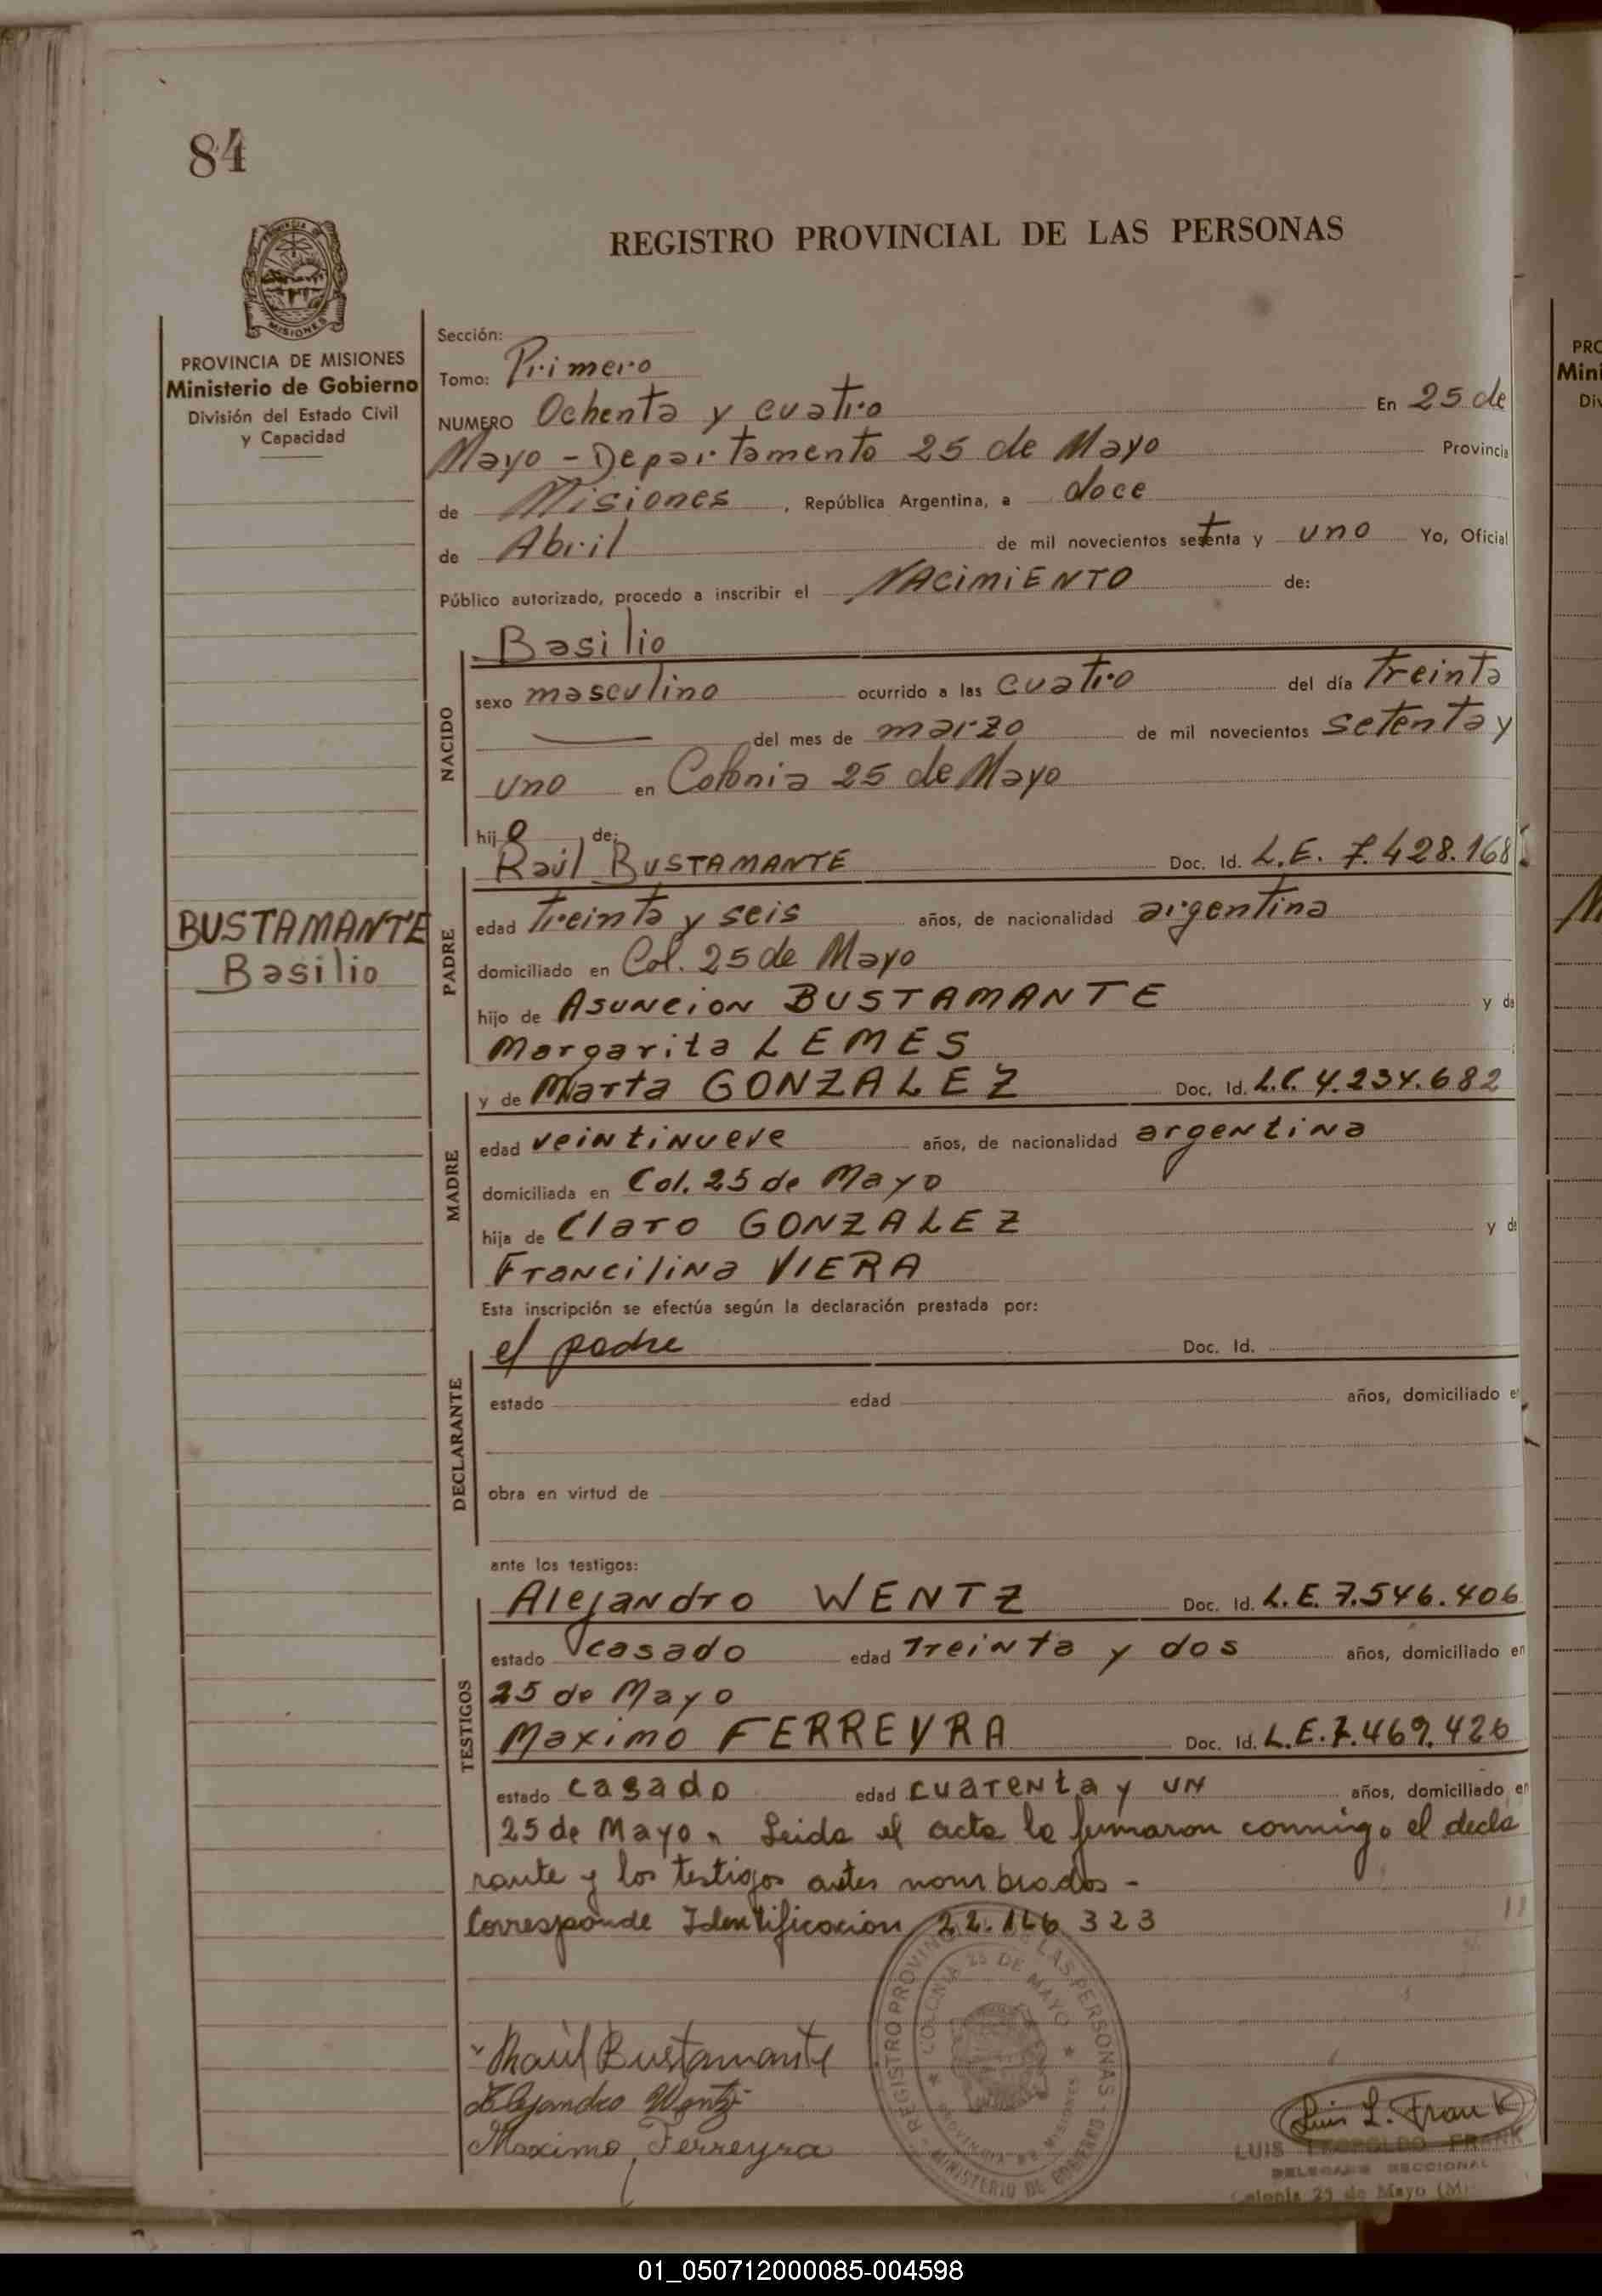 84
REGISTRO PROVINCIAL DE LAS PERSONAS
PROVINCIA DE MISIONES
Ministerio de Gobierno
División del Estado Civil
y Capacidad
Sección:
Tomo: Primero
NUMERO Ochenta y cuatro En 25 de
Mayo - Departamento 25 de Mayo Provincia
de Misiones, República Argentina, a doce
de Abril de mil novecientos setenta y uno Yo, Oficial
Público autorizado, procedo a inscribir el NACIMIENTO de:
NACIDO
Basilio
sexo masculino ocurrido a las cuatro del día treinta
del mes de marzo de mil novecientos setenta y
uno en Colonia 25 de Mayo
hijo de:
BUSTAMANTE
Basilio
PADRE
Raúl BUSTAMANTE Doc. Id. L.E. 7.428.168
edad treinta y seis años, de nacionalidad argentina
domiciliado en Col. 25 de Mayo
hijo de Asuncion BUSTAMANTE y de
Margarita LEMES
MADRE
y de Marta GONZALEZ Doc. Id. L.C. 4.234.682
edad veintinueve años, de nacionalidad argentina
domiciliada en Col. 25 de Mayo
hija de Claro GONZALEZ y de
Francilina VIERA
Esta inscripción se efectúa según la declaración prestada por:
DECLARANTE
el padre Doc. Id.
estado edad años, domiciliado en
obra en virtud de
ante los testigos:
TESTIGOS
Alejandro WENTZ Doc. Id. L.E. 7.546.406
estado casado edad Treinta y dos años, domiciliado en
25 de Mayo
Maximo FERREYRA Doc. Id. L.E. 7.469.426
estado casado edad cuarenta y un años, domiciliado en
25 de Mayo. Leida el acta la firmaron conmigo el decla
rante y los testigos antes nombrados -
Corresponde Identificacion 22.166 323
REGISTRO PROVINCIAL DE LAS PERSONAS - MINISTERIO DE GOBIERNO
COLONIA 25 DE MAYO
PROVINCIA DE MISIONES
Raúl Bustamante
Alejandro Wentz
Maximo Ferreyra
Luis L. Frank
LUIS LEOPOLDO FRANK
DELEGADO SECCIONAL
Colonia 25 de Mayo (M)
01_050712000085-004598